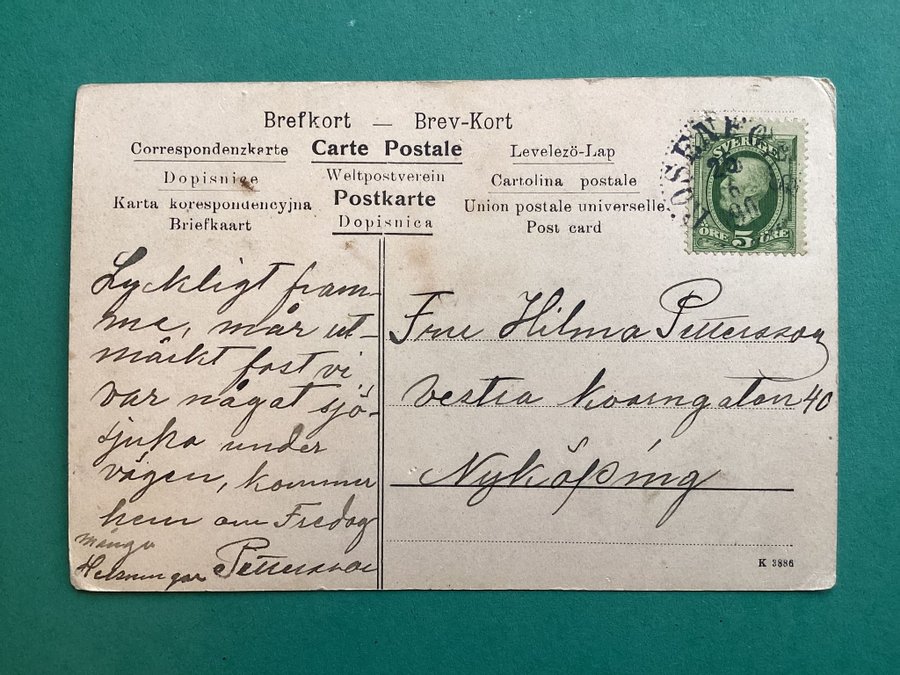 Brefkort — Brev-Kort
Correspondenzkarte Carte Postale Levelezö-Lap
Dopisnice Weltpostverein Cartolina postale
Karta korespondencyjna Postkarte Union postale universelle
Briefkaart Dopisnica Post card
SVERIGE
5
ÖRE ÖRE
Lyckligt fram-
me, mår ut-
märkt fast vi
var något sjö-
sjuka under
vägen, kommer
hem om Fredag
många
Helsningar Pettersson
Fru Hilma Pettersson
vestra kvarngatan 40
Nyköping
K 3886